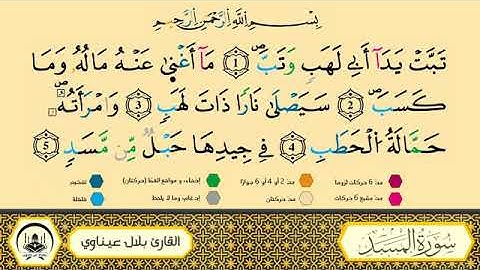 بِسْمِ اللَّهِ الرَّحْمَٰنِ الرَّحِيمِ
تَبَّتْ يَدَآ أَبِى لَهَبٍ وَتَبَّ ۝1 مَآ أَغْنَىٰ عَنْهُ مَالُهُۥ وَمَا
كَسَبَ ۝2 سَيَصْلَىٰ نَارًا ذَاتَ لَهَبٍ ۝3 وَٱمْرَأَتُهُۥ
حَمَّالَةَ ٱلْحَطَبِ ۝4 فِى جِيدِهَا حَبْلٌ مِّن مَّسَدٍۭ ۝5
مد 6 حركات لزوما
مد 2 أو 4 أو 6 جوازا
إخفاء، و مواقع الغنة (حركتان)
تفخيم
مد مشبع 6 حركات
مد حركتان
إدغام، وما لا يلفظ
قلقلة
سورة المسد
القارئ بلال عيناوي